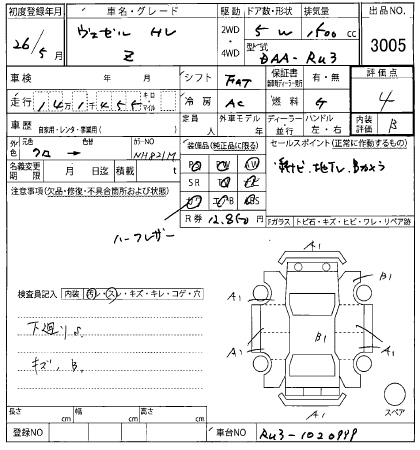 初度登録年月
26/5月
車名・グレード
ヴェゼル HV
Z
駆動
2WD
・
4WD
ドア数・形状
5 W
排気量
1500 cc
型式
DAA-RU3
出品NO.
3005
車検 年 月
シフト FAT
保証書 有・無
評価点
4
走行
冷房 AC
燃料 G
車歴 自家用・レンタ・事業用( )
定員 人
外車モデル 年
ディーラー・並行
ハンドル 左・右
内装評価 B
外色 元色 クロ → 色替
カラーNO NH821M
装備品(純正品に限る)
セールスポイント(正常に作動するもの)
名義変更期限 月 日迄
積載 t
SR
注意事項(欠品・修復・不具合箇所および状態)
ハーフレザー
R券 12,850円
Fガラス トビ石・キズ・ヒビ・ワレ・リペア跡
A1
B1
A1
A1
B1
A1
A1
検査員記入 内装 汚レ・スレ・キズ・キレ・コゲ・穴
下廻りS
キズ、B
スペア
長さ cm
幅 cm
高さ cm
登録NO
車台NO RU3-1020999